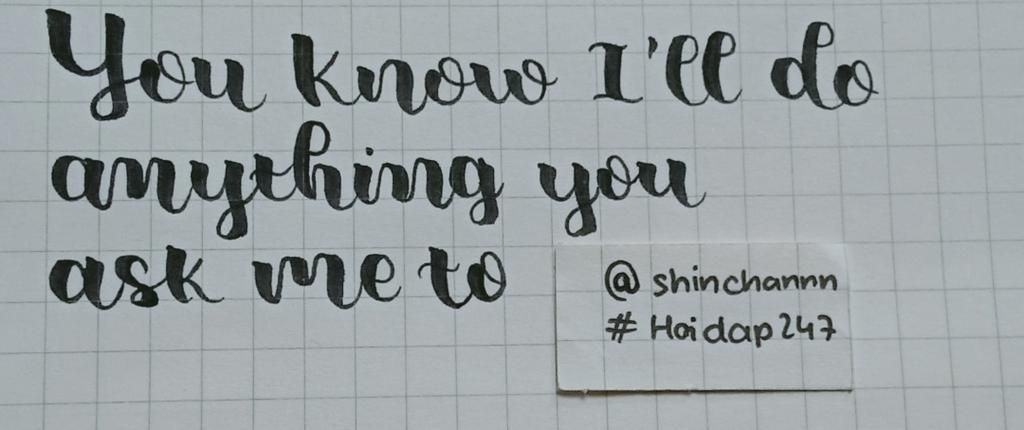 You know I'll do
anything you
ask me to
@ shinchannn
# Hoidap247